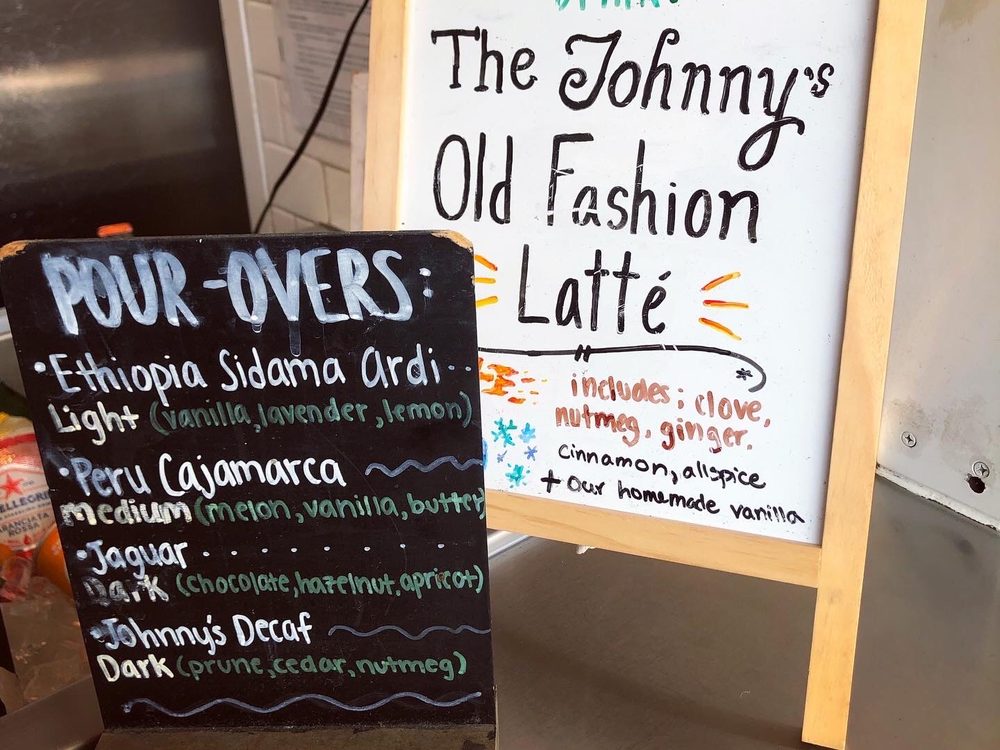 POUR-OVERS:
• Ethiopia Sidama Ardi..
Light (vanilla, lavender, lemon)
• Peru Cajamarca
medium (melon, vanilla, butter)
• Jaguar . . . . . . . .
Dark (chocolate, hazelnut, apricot)
• Johnny's Decaf
Dark (prune, cedar, nutmeg)
The Johnny's
Old Fashion
Latté
includes; clove,
nutmeg, ginger.
cinnamon, allspice
+ our homemade vanilla